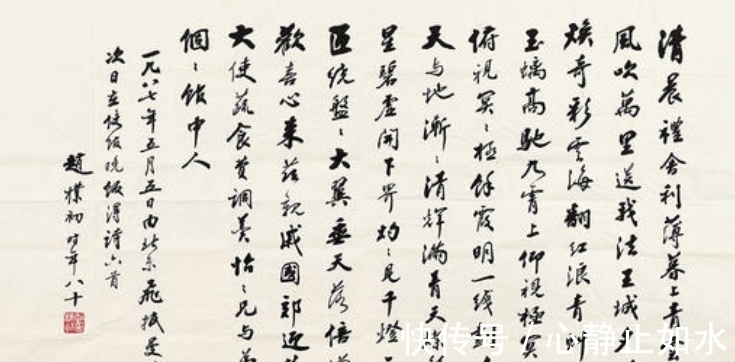 清晨禮舍利薄暮上青
風吹萬里送我法王城
煥奇彩雲海翻紅浪青
玉螭高馳九霄上仰視極冥
俯視冥〻極餘霞明一线
天与地漸〻清輝滿青天
星碧虛開下界灼〻見千燈
匝繞盤〻大翼垂天落倍
歡喜心来蒞親戚國郊迎
大使蔬食费調羹怡〻兄与弟
個〻飯中人
一九八七年五月五日由北京飛抵曼
次日在使館晚飯得詩六首
趙樸初時年八十
快传号 / 心静止如水